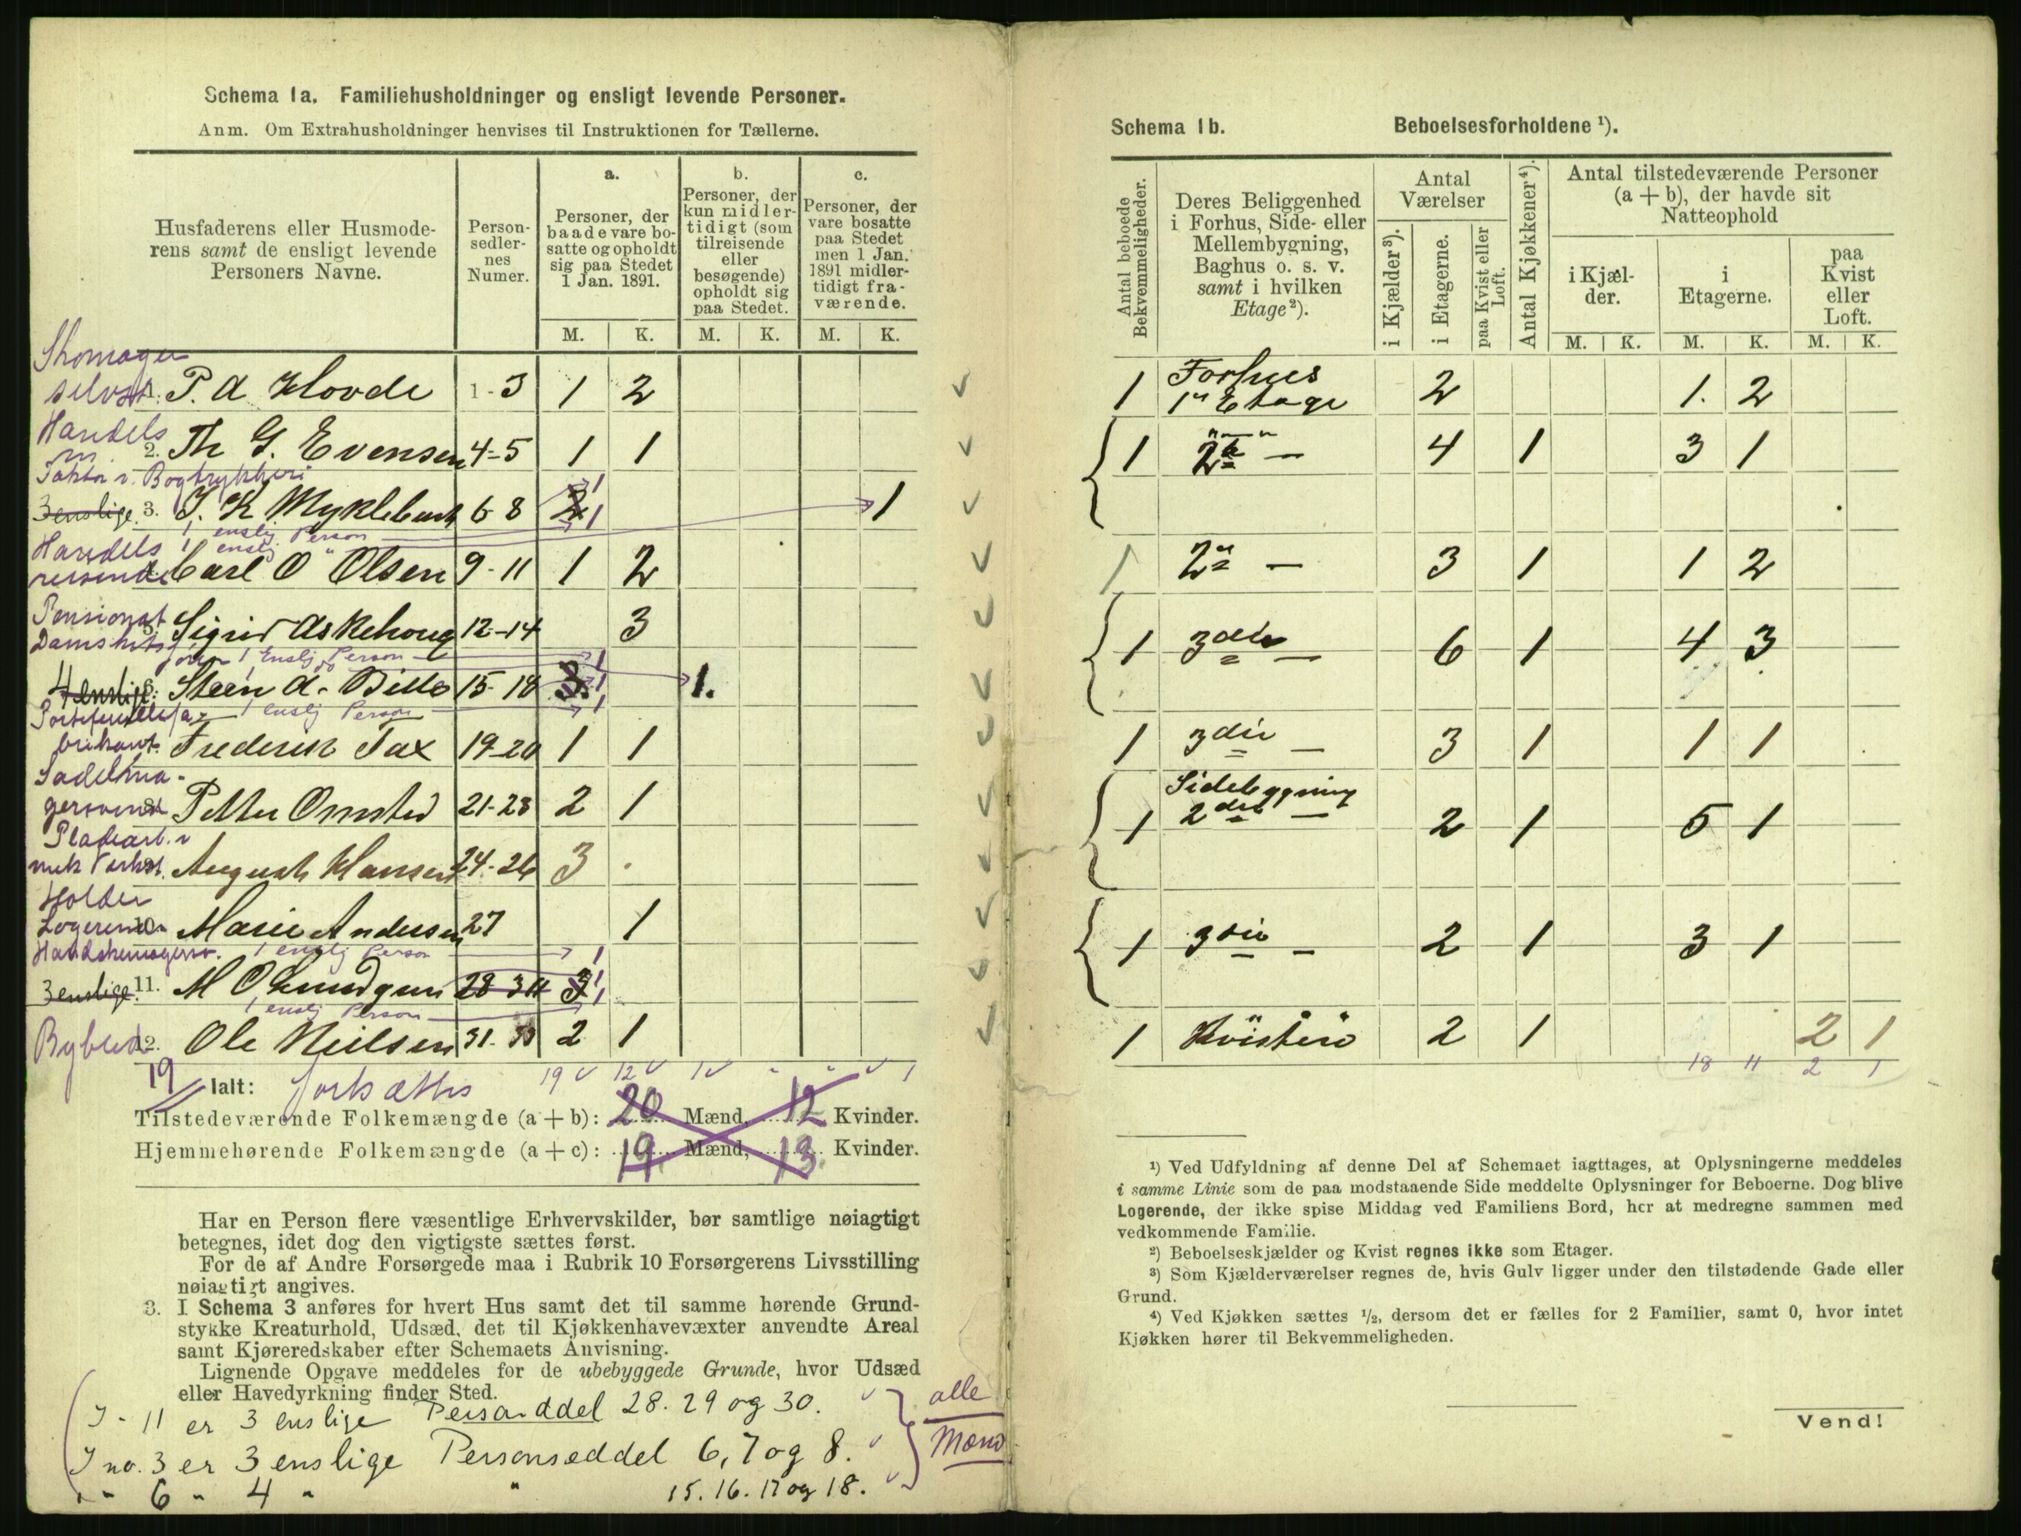 Schema 1a. Familiehusholdninger og ensligt levende Personer.
Anm. Om Extrahusholdninger henvises til Instruktionen for Tællerne.
Husfaderens eller Husmoderens samt de ensligt levende Personers Navne.
Personsedlernes Numer.
a.
Personer, der baade vare bosatte og opholdt sig paa Stedet 1 Jan. 1891.
b.
Personer, der kun midlertidigt (som tilreisende eller besøgende) opholdt sig paa Stedet.
c.
Personer, der vare bosatte paa Stedet men 1 Jan. 1891 midlertidigt fraværende.
M. K. M. K. M. K.
Skomager
selvst. 1. P. A Hovde 1-3 1 2
Handels
m. 2. Th G. Evensen 4-5 1 1
Faktor i Bogtrykkeri 1
3 enslige. 3. J. K Myklebust 6 8 2 1 1
1 enslig Person
1 enslig "
Handels
reisende 4. Carl O Olsen 9-11 1 2
Pensionat
5. Sigrid Askehoug 12-14 3
1 Enslig Person 1
4 enslige 6. Steen A. Bille 15-18 3. 1 1.
1 enslig Person 1
Portefeuillefa-
brikant. 7. Frederik Tax 19-20 1 1
Sadelma-
gersvend 8. Petter Omsted 21-23 2 1
Pladearb. v
mek Verkst. 9. August Hansen 24-26 3 .
Holder
Logerende 10. Marie Andersen 27 1
Handskemagersv. 1 enslig Person 1
3 enslige. 11. M O Lundgren 28 30 3 1
1 enslig Person 1
12. Ole Neilsen 31-33 2 1
19 Ialt: fortsættes 19 v 12 v 1 v " " v 1
Tilstedeværende Folkemængde (a + b): 20 Mænd, 12 Kvinder.
Hjemmehørende Folkemængde (a + c): 19. Mænd, 13. Kvinder.
Har en Person flere væsentlige Erhvervskilder, bør samtlige nøiagtigt
betegnes, idet dog den vigtigste sættes først.
For de af Andre Forsørgede maa i Rubrik 10 Forsørgerens Livsstilling
nøiagtigt angives.
3. I Schema 3 anføres for hvert Hus samt det til samme hørende Grund-
stykke Kreaturhold, Udsæd, det til Kjøkkenhavevæxter anvendte Areal
samt Kjøreredskaber efter Schemaets Anvisning.
Lignende Opgave meddeles for de ubebyggede Grunde, hvor Udsæd
eller Havedyrkning finder Sted.
I - 11 er 3 enslige Personddel 28. 29 og 30.
I no. 3 er 3 enslige Personseddel 6, 7 og 8.
" - 6 " 4 " " 15. 16. 17 og 18.
alle
Mænd
Schema 1b. Beboelsesforholdene ¹).
Antal beboede Bekvemmeligheder.
Deres Beliggenhed i Forhus, Side- eller Mellembygning, Baghus o. s. v. samt i hvilken Etage²).
Antal Værelser
i Kjælder³).
i Etagerne.
paa Kvist eller Loft.
Antal Kjøkkener⁴).
Antal tilstedeværende Personer (a + b), der havde sit Natteophold
i Kjælder.
i Etagerne.
paa Kvist eller Loft.
M. K. M. K. M. K.
1 Forhus
1ste Etage 2 1. 2
1 2den — 4 1 3 1
1 2den — 3 1 1 2
1 3die — 6 1 4 3
1 3die — 3 1 1 1
Sidebygning
1 2den — 2 1 5 1
1 3die — 2 1 3 1
1 2 1 2 1
18 11 2 1
¹) Ved Udfyldning af denne Del af Schemaet iagttages, at Oplysningerne meddeles
i samme Linie som de paa modstaaende Side meddelte Oplysninger for Beboerne. Dog blive
Logerende, der ikke spise Middag ved Familiens Bord, her at medregne sammen med
vedkommende Familie.
²) Beboelseskjælder og Kvist regnes ikke som Etager.
³) Som Kjælderværelser regnes de, hvis Gulv ligger under den tilstødende Gade eller
Grund.
⁴) Ved Kjøkken sættes ½, dersom det er fælles for 2 Familier, samt 0, hvor intet
Kjøkken hører til Bekvemmeligheden.
Vend!